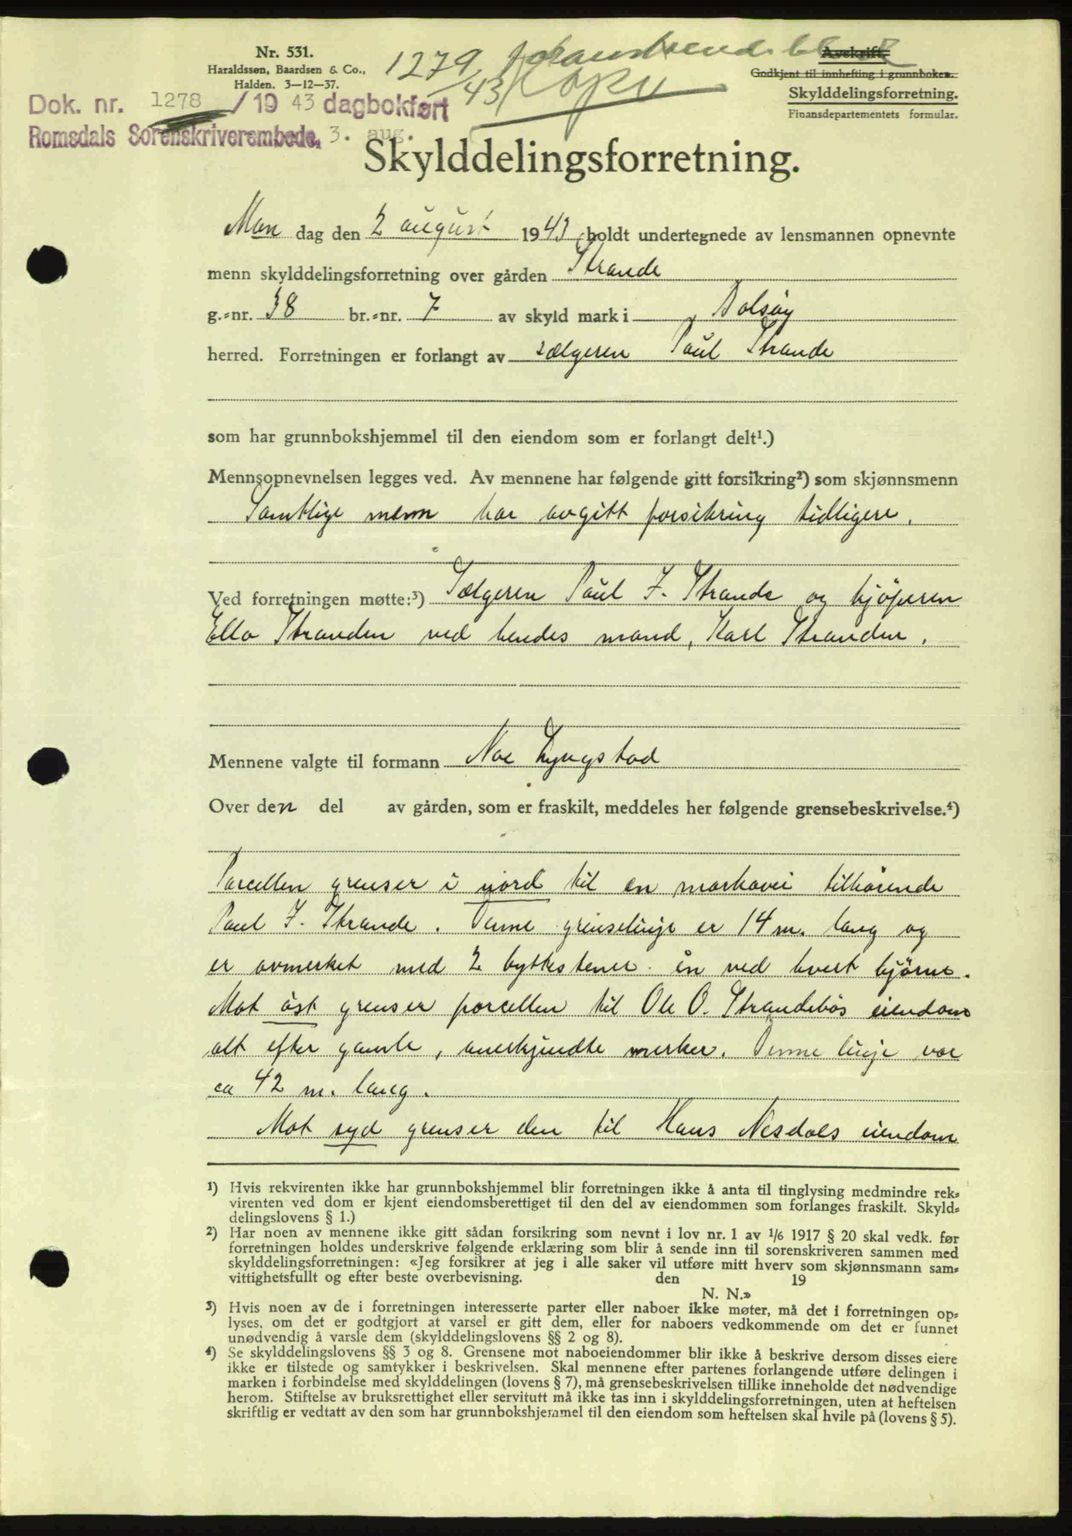 Nr. 531.
Haraldssøn, Baardsen & Co.,
Halden. 3—12—37.
1279/43
Avskrift.
Godkjent til innhefting i grunnboken.
Skylddelingsforretning.
Finansdepartementets formular.
Dok. nr. 1278 / 1943 dagbokført
Romsdals Sorenskriverembede, 3. aug.
Skylddelingsforretning.
Man dag den 2 august 1943, holdt undertegnede av lensmannen opnevnte
menn skylddelingsforretning over gården Strande
g.-nr. 38 br.-nr. 7 av skyld mark i Bolsøy
herred. Forretningen er forlangt av sælgeren Paul Strande
som har grunnbokshjemmel til den eiendom som er forlangt delt¹.)
Mennsopnevnelsen legges ved. Av mennene har følgende gitt forsikring²) som skjønnsmenn
Samtlige menn har avgitt forsikring tidligere.
Ved forretningen møtte:³) Sælgeren Paul J. Strande og kjøperen
Ella Stranden ved hendes mand, Karl Stranden.
Mennene valgte til formann Noe Lyngstad
Over den del av gården, som er fraskilt, meddeles her følgende grensebeskrivelse.⁴)
Parcellen grenser i nord til en markavei tilhørende
Paul J. Strande. Denne grenselinje er 14 m. lang og
er avmerket med 2 byttestener. én ved hvert hjørne.
Mot øst grenser parcellen til Ole O. Strandebøs eiendom
alt efter gamle, anerkjendte merker. Denne linje var
ca 42 m. lang.
Mot syd grenser den til Hans Nesdals eiendom
¹) Hvis rekvirenten ikke har grunnbokshjemmel blir forretningen ikke å anta til tinglysing medmindre rek-
virenten ved dom er kjent eiendomsberettiget til den del av eiendommen som forlanges fraskilt. Skyld-
delingslovens § 1.)
²) Har noen av mennene ikke gitt sådan forsikring som nevnt i lov nr. 1 av 1/6 1917 § 20 skal vedk. før
forretningen holdes underskrive følgende erklæring som blir å sende inn til sorenskriveren sammen med
skylddelingsforretningen: «Jeg forsikrer at jeg i alle saker vil utføre mitt hverv som skjønnsmann sam-
vittighetsfullt og efter beste overbevisning. den 19
N. N.»
³) Hvis noen av de i forretningen interesserte parter eller naboer ikke møter, må det i forretningen op-
lyses, om det er godtgjort at varsel er gitt dem, eller for naboers vedkommende om det er funnet
unødvendig å varsle dem (skylddelingslovens §§ 2 og 8).
⁴) Se skylddelingslovens §§ 3 og 8. Grensene mot naboeiendommer blir ikke å beskrive dersom disses eiere
ikke er tilstede og samtykker i beskrivelsen. Skal mennene efter partenes forlangende utføre delingen i
marken i forbindelse med skylddelingen (lovens § 7), må grensebeskrivelsen tillike inneholde det nødvendige
herom. Stiftelse av bruksrettighet eller servitutt må ikke tas inn i skylddelingsforretningen, uten at heftelsen
skriftlig er vedtatt av den som har grunnbokshjemmel til den eiendom som heftelsen skal hvile på (lovens § 5).